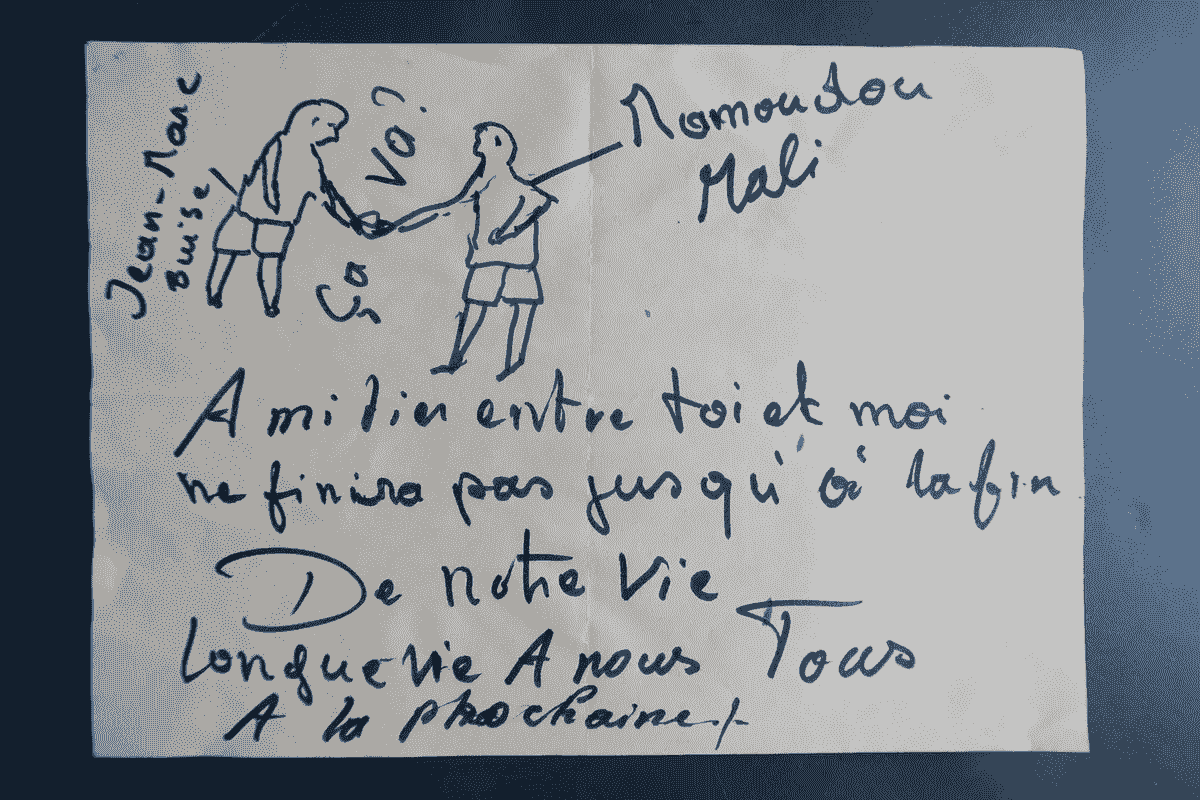 Jean-Marc
Buise
Va?
ça
Mamoudou
Mali
Ami lien entre toi et moi
ne finira pas jusqu'à la fin
De notre Vie
Longue vie A nous Tous
A la prochaine